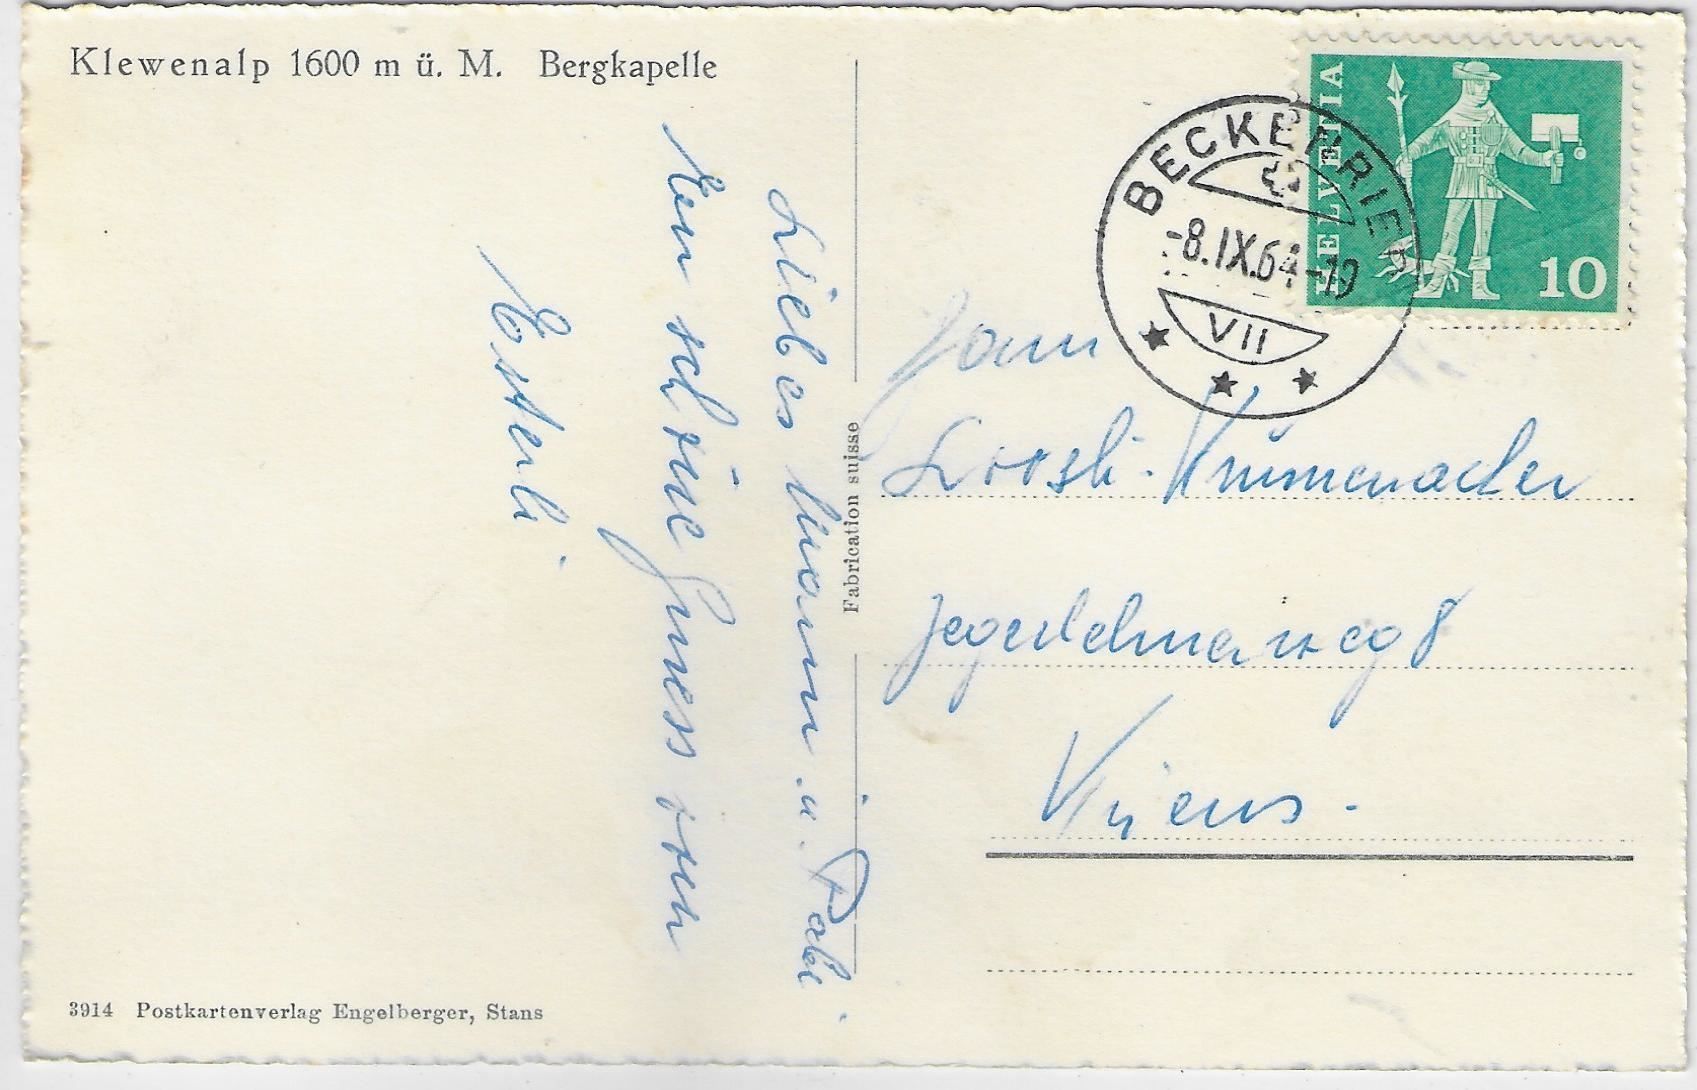 Klewenalp 1600 m ü. M. Bergkapelle
Liebes Mami u. Papi
Ein schöne Gruess von
Esterli
Fabrication suisse
3914 Postkartenverlag Engelberger, Stans
HELVETIA
10
BECKENRIED
-8.IX.64-19
VII
Fam
Loosli-Kummenacker
8
Kriens.